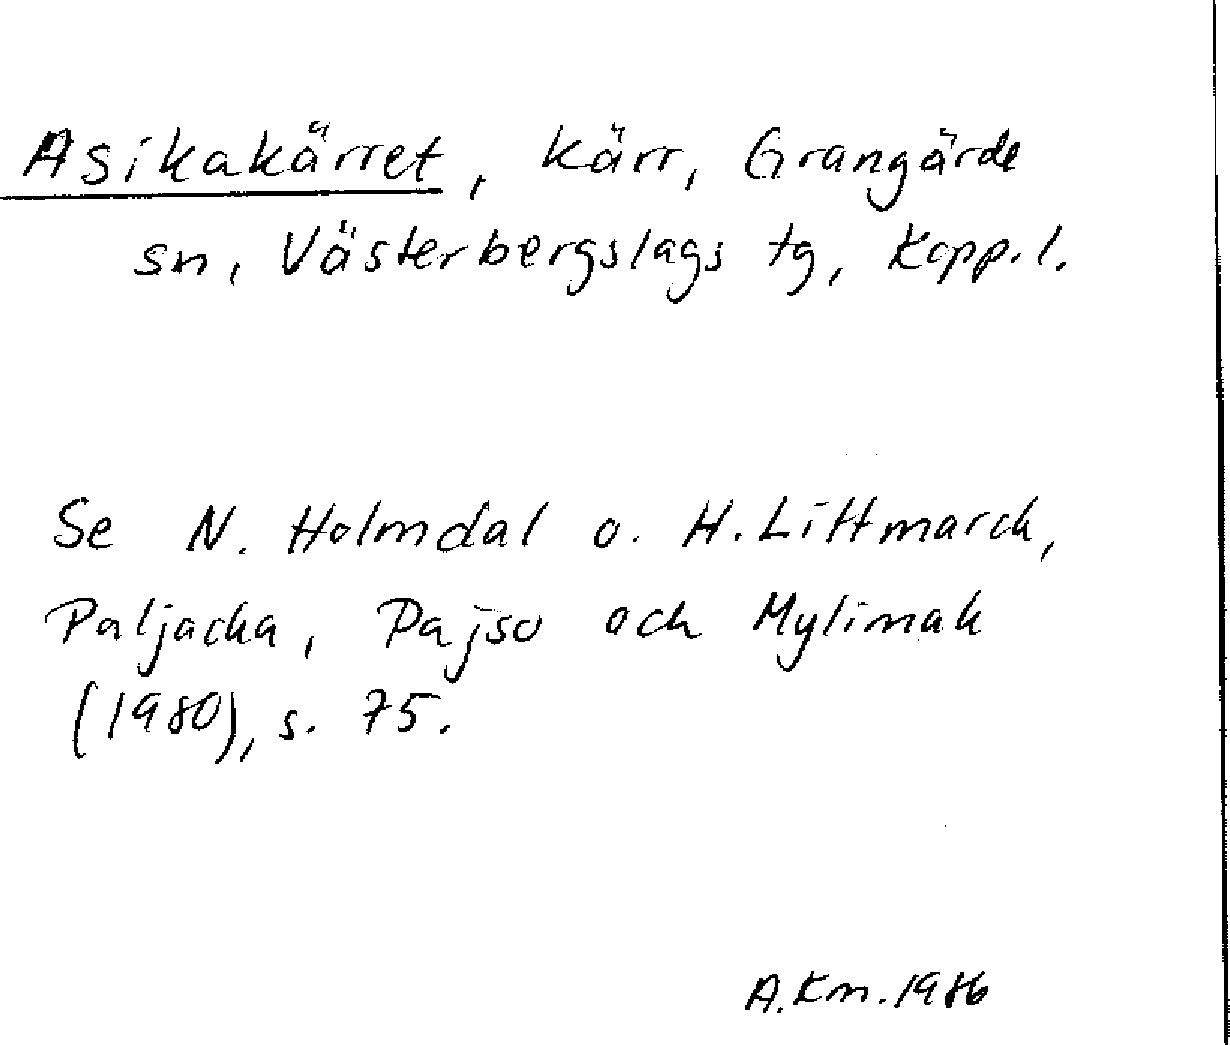 Asikakärret, kärr, Grangärde
sn, Västerbergslags tg, Kopp.l.
Se N. Holmdal o. H. Littmarck,
Paljacka, Pajso och Mylimak
(1980), s. 75.
A.Km.1986